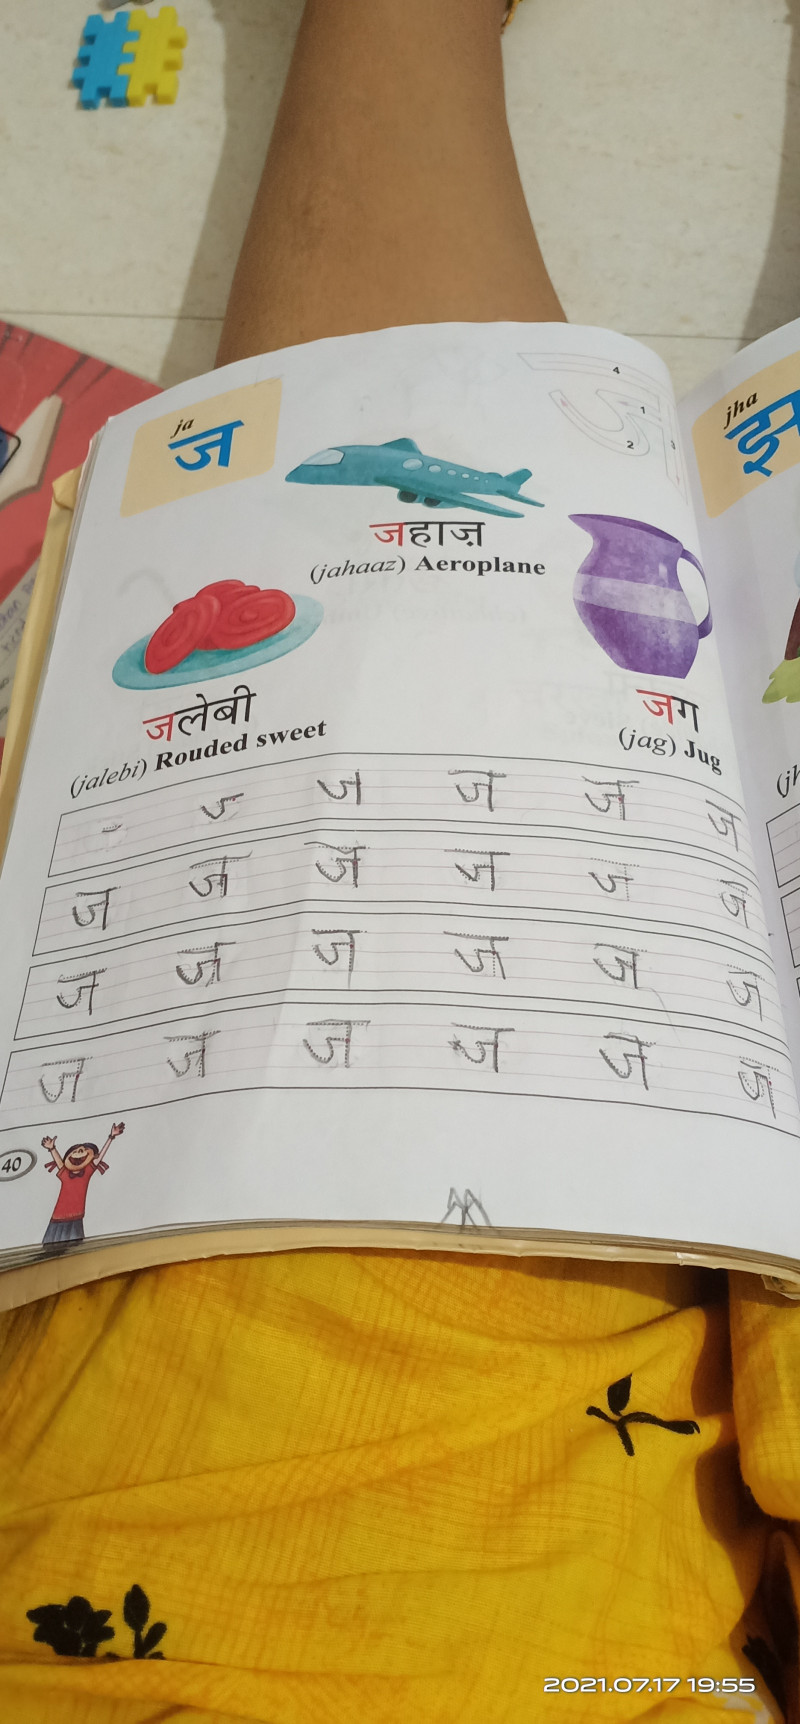 ja
ज
4
1
2
3
jha
झ
जहाज़
(jahaaz) Aeroplane
जलेबी
(jalebi) Rouded sweet
जग
(jag) Jug
ज ज ज ज ज
ज ज ज ज ज ज
ज ज ज ज ज ज
ज ज ज ज ज ज
40
2021.07.17 19:55